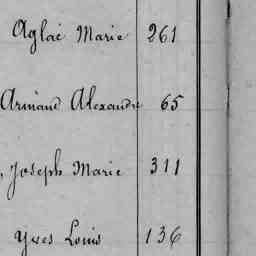 Aglaé Marie 261
Armand Alexandre 65
, Joseph Marie 311
Yves Louis 136